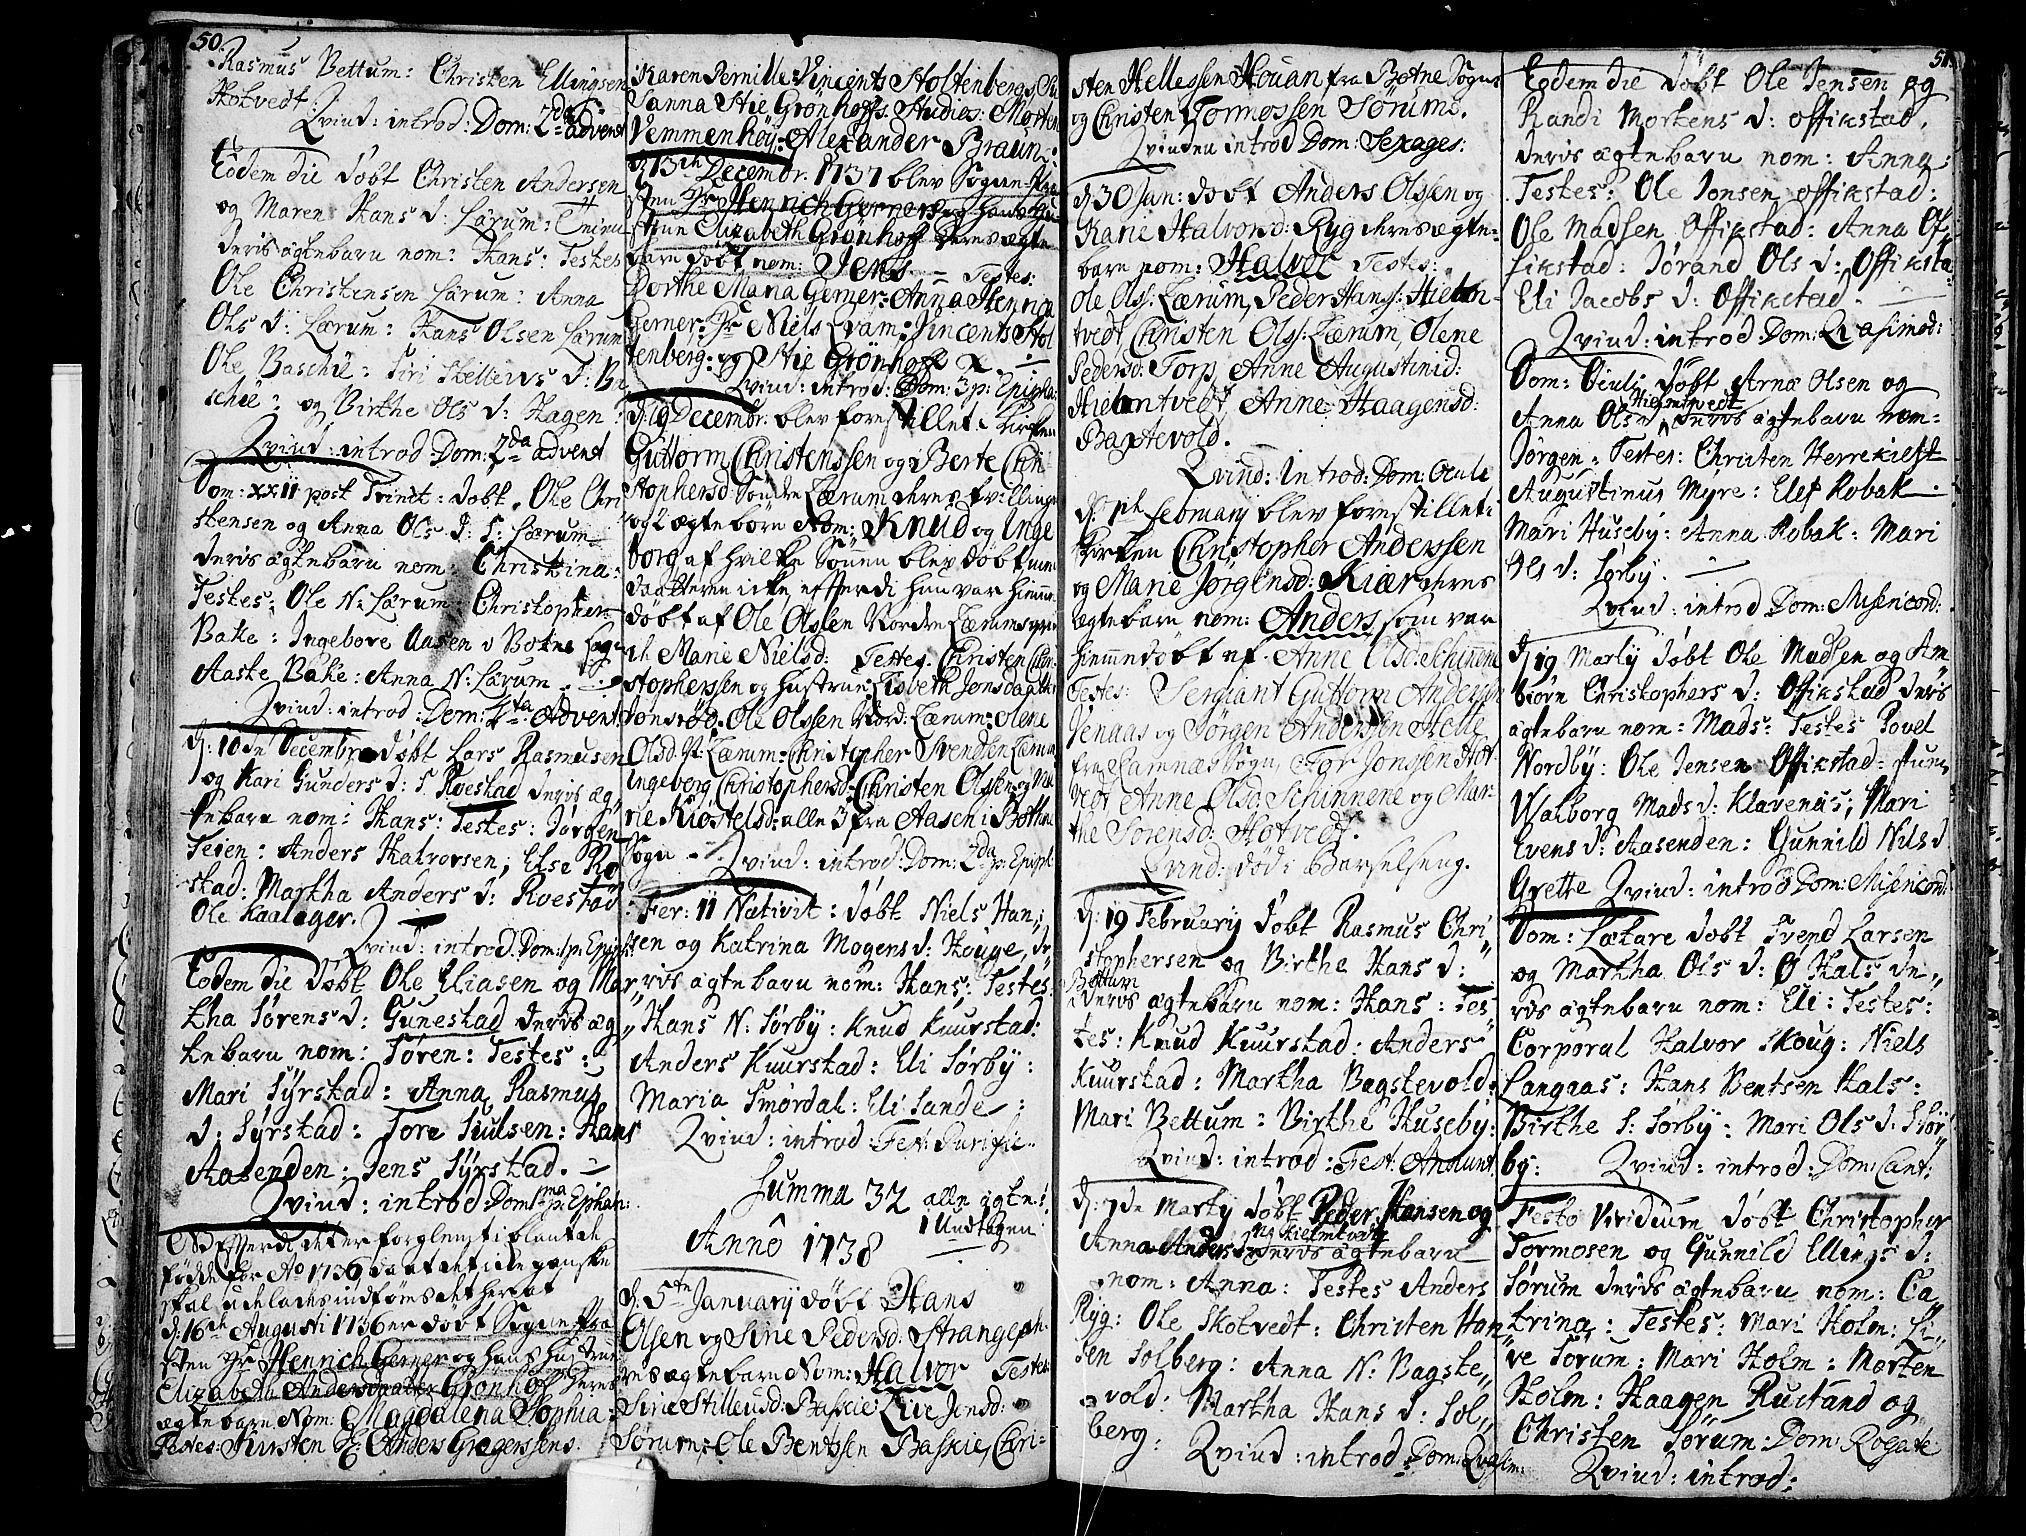 50.
Rasmus Bettum: Christen Ellingsen
Skotvedt:
Qvind: introd: Dom: 2da advent
Eodem die döbt Christen Andersen
og Maren Hans d: Lærum:
deris ægtebarn nom: Hans: Testes
Ole Christensen Lærum: Anna
Ols d: Lærum: Hans Olsen Lærum
Ole Baschie: Siri Stellevs d: Ba
schie: og Birthe Ols d: Hagen:
Qvind: introd: Dom: 2da advent
Dom: XXII post Trinit: döbt Ole Chri
stensen og Anna Ols d: S: Lærum
deris ægtebarn nom: Christina:
Testes: Ole N: Lærum: Christopher
Bake: Ingebore Aasen i Botne Sogn
Aaste Bake: Anna N: Lærum
Qvind: introd: Dom: 4ta Advent:
d: 10de Decembr döbt Lars Rasmusen
og Kari Gunders d: S. Roestad deris æg„
tebarn nom: Hans: Testes: Jörgen
Teien: Anders Halvorsen, Else Ro
stad: Martha Anders d: Roestad
Ole Kaalager.
Qvind: introd: Dom: 1 p: Epiph:
Eodem die döbt Ole Eliasen og Mar„
tha Sörens d: Gunestad deris æg„
tebarn nom: Sören: Testes:
Mari Syrstad: Anna Rasmus
d: Syrstad: Tore Juulsen: Hans
Aasenden: Jens Syrstad.
Qvind: introd: Dom: 1ma p: Epiphan:
NB Efferdi det er forglemt i blant de
födde for Ao 1736, da at det icke ganske
skal udelades indföres det her at
d: 16de Augusti 1736 er döbt Sogne Præ
sten Hr Henrich Gerner og hans hustrue
Elizabeth Andersdaatter Grönhof deres
ægte barn Nom: Magdalena Sophia:
Testes: Kirsten Sl: Anders Gregerssens.

Karen Pernille: Vincents Stoltenberg: Su
sanna Stie Grönhoffs. Studios: Morten
Vemmenhöy: Alexander Braun:
d: 13de Decembr. 1737 blev Sogne Præ
sten Hr Henrich Gerners og hans hu
strue Elizabeth Grönhoff deres ægte
barn döbt nom: Jens. Testes:
Dorthe Maria Gerner: Anna Henrica
Gerner: Hr Niels Qvam: Vincents Stol
tenberg: og Stie Grönhoff
Qvind: introd: Dom: 3 p: Epipha:
d: 19 Decembr. blev forestillet i Kirken
Guttorm Christenssen og Berte Chri
stophersd: Söndre Lærum deres tvillinge
og ægte börn Nom: Knud og Inge
borg af hvilke Sönnen blev döbt men
daatteren icke, efferdi hun var hiemme
döbt af Ole Olssen Nordre Lærum
Marie Nielsd: Testes: Christen Chri
stopherssen og hustrue: Lisbeth Jonsdaatter
Ole Olssen Nord: Lærum: Olene
Olsd: N: Lærum: Christopher Svendsen Lærum
Ingeborg Christophersd: Christen Olssen og Ma
rie Kiöstelsd: alle 3 fra Aasen i Bothne
Sogn
Qvind: introd: Dom: 2da p: Epiph:
Fer: II Nativit: döbt Niels Han„
sen og Katrina Mogens d: Houge, de
ris ægtebarn nom: Hans: Testes:
Hans N: Sörby: Knud Kuurstad:
Anders Kuurstad: Eli Sörby:
Maria Smördal: Eli Sande:
Qvind: introd: Fest: Purific:
Summa 32 alle ægte
1 Undtagen
Annô 1738
d: 5te January döbt Hans
Olsen og Sine Pedersd: Strangeph.
res ægte barn Nom: Halvor Testes
Sirie Stillevsd: Baskie: Live Jensd:
Sörum: Ole Bentssen Baskie, Chri-

sten Hellessen Houan fra Botne Sogn
og Christen Tormossen Sörum.
Qvinden introd Dom: Sexages:
d: 30 Jan: döbt Anders Olssen og
Karie Halvorsd: Ryg deres ægte-
barn nom: Halvor Testes:
Ole Ols: Lærum, Peder Hans: Hielm-
tvedt, Christen Ols: Lærum, Olene
Pedersd: Torp, Anne Augustinid:
Hielmtvedt, Anne Haagensd:
Bagtevold.
Qvind: Introd: Dom: Oculi
d: 1te February blev forestillet i
Kirken Christopher Anderssen
og Marie Jörgensd: Kiær deres
ægtebarn nom: Anders, som var
hiemmedöbt af Anne Olsd: Schinnene
Testes: Sergiant Guttorm Anderssen
Venaas og Jörgen Andersen Helle
fra Ramnæs Sogn, Tor Jonssen Hot
vedt Anne Olsd: Schinnene og Mar-
the Sörensd: Hotvedt.
Qvind: död i Barselseng.
d: 19 February döbt Rasmus Chri„
stophersen og Birthe Hans d:
Bettum
deris ægtebarn nom: Hans: Tes„
tes: Knud Kuurstad: Anders
Kuurstad: Martha Bagstevold:
Mari Bettum: Birthe Huseby:
Qvind: introd: Fest: Annunt:
d: 7de Marty döbt Peder Hansen og
Anna Anders d: N: Hielmtvedt deris ægtebarn
nom: Anna: Testes Anders
Ryg: Ole Skotvedt: Christen Han„
sen Solberg: Anna N: Bagste„
vold: Martha Hans d: Sol„
berg: Qvind: introd: Dom: Qvasim:

51.
Eodem die döbt Ole Jensen og
Randi Mortens d: Offikstad,
deris ægtebarn nom: Anna:
Testes: Ole Jonsen Offikstad:
Ole Madsen Offikstad: Anna Of„
fikstad: Jörand Ols d: Offiksta
Eli Jacobs d: Offikstad.
Qvind: introd: Dom: Qvasimod:
Dom: Oculi döbt Arne Olsen og
Anna Ols d: Hielmtvedt deris ægtebarn nom:
Jörgen: Testes: Christen Herrekiest
Augustinus Myre: Elef Robak
Mari Huseby: Anna Robak: Mari
Ols d: Sörby.
Qvind: introd Dom: Misericord:
d: 19 Marty döbt Ole Madsen og Am
biörn Christophers d: Offikstad deris
ægtebarn nom: Mads: Testes Povel
Nordby: Ole Jensen Offikstad:
Walborg Mads d: Klavenæs, Mari
Evens d: Aasenden: Gunnild Nils d
Grette Qvind: introd Dom: Misericord:
Dom: Lætare döbt Svend Larsen
og Martha Ols d: Ø Hals de„
ris ægtebarn nom: Eli: Testes:
Corporal Halvor Skoug: Niels
Langaas: Hans Bentsen Hals:
Birthe S: Sörby: Mari Ols d: S Sör
by: Qvind: introd: Dom: Cant:
Festo Viridium döbt Christopher
Tormosen og Gunnild Ellings d:
Sörum deris ægtebarn nom: Ca„
trina: Testes: Mari Holm: Li„
ve Sorum: Mari Holm: Morten
Holm: Haagen Rustand og
Christen Sörum: Dom: Rogate
Qvind: introd: